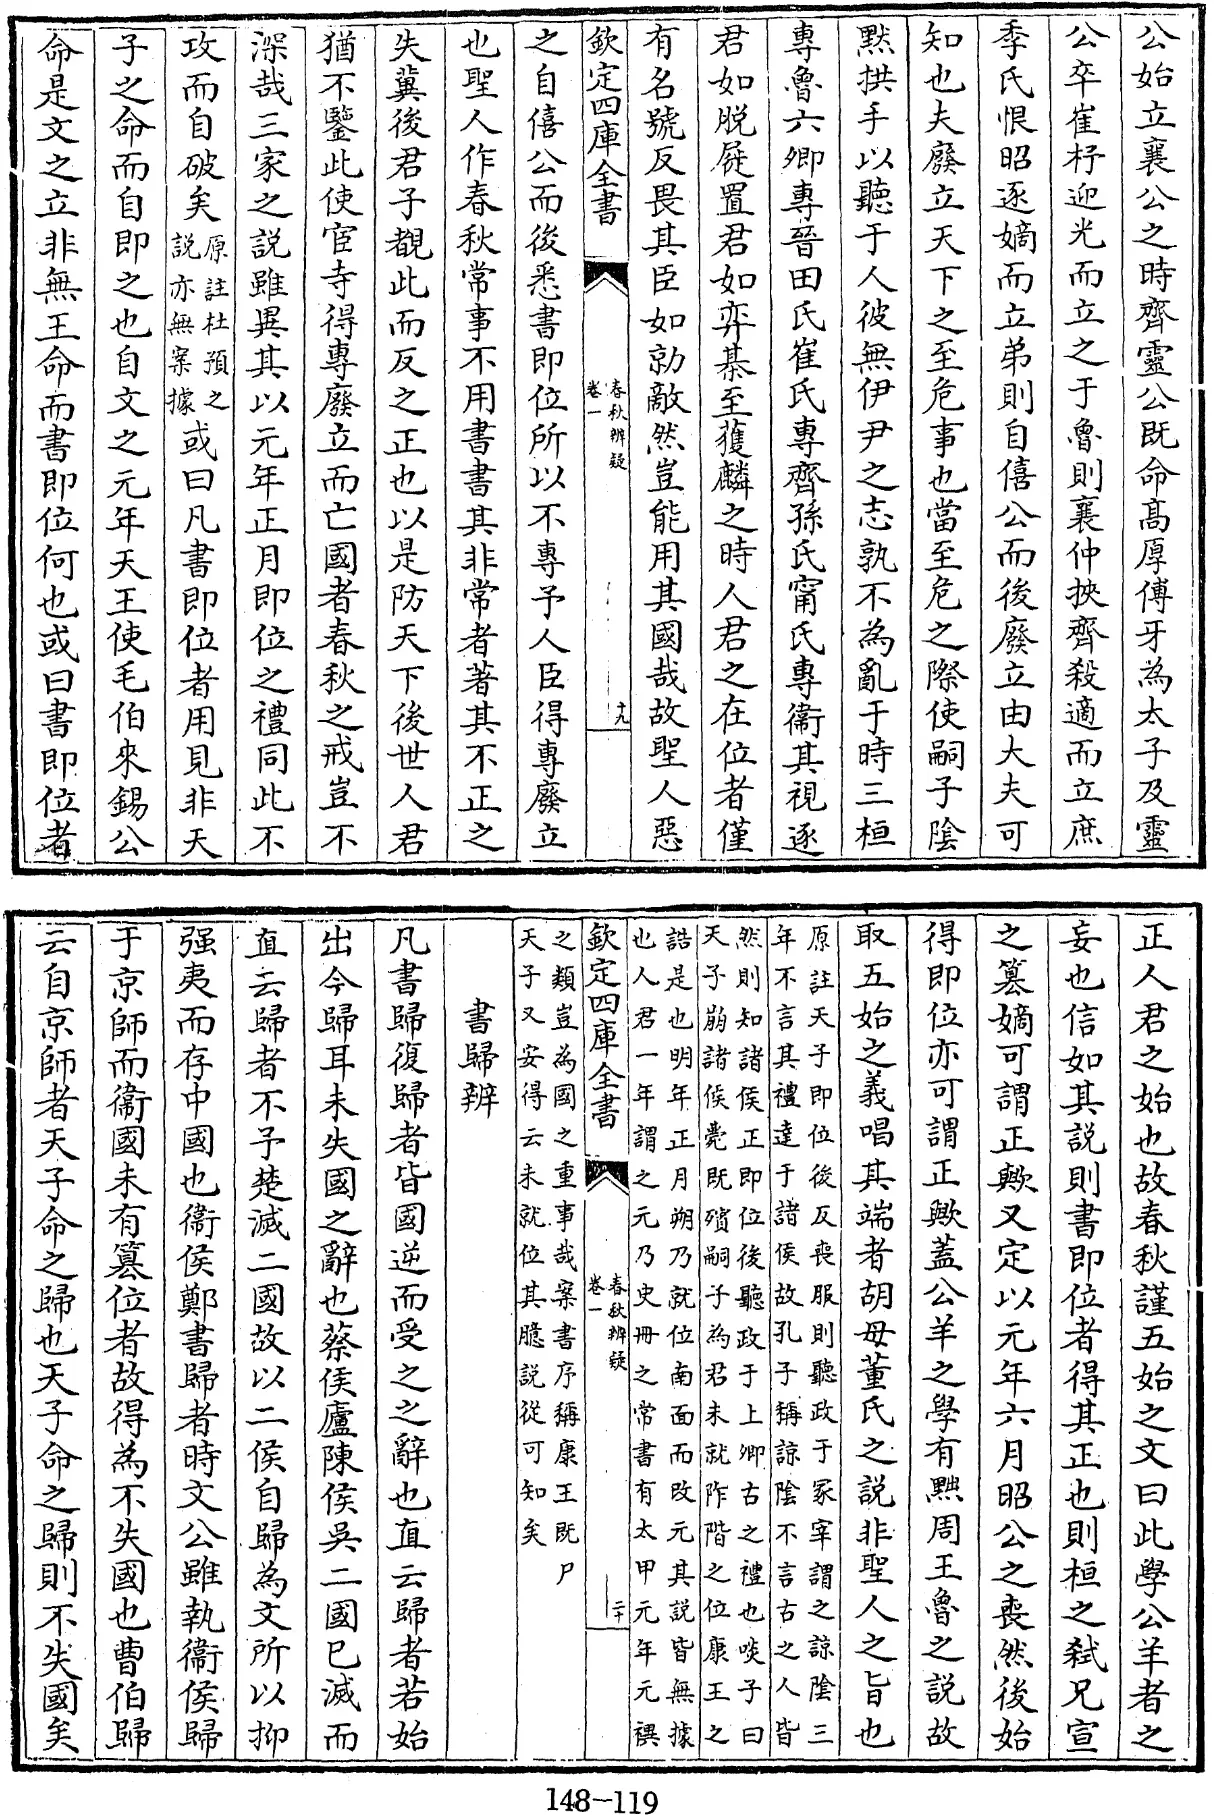 公始立襄公之時齊靈公既命高厚傅牙為太子及靈
公卒崔杼迎光而立之于魯則襄仲挾齊殺適而立庶
季氏恨昭逐嫡而立弟則自僖公而後廢立由大夫可
知也夫廢立天下之至危事也當至危之際使嗣子陰
黙拱手以聽于人彼無伊尹之志孰不為亂于時三桓
專魯六卿專晉田氏崔氏專齊孫氏甯氏專衞其視逐
君如脱屣置君如弈棊至獲麟之時人君之在位者僅
有名號反畏其臣如勍敵然豈能用其國哉故聖人惡
欽定四庫全書
春秋辨疑
卷一
十九
之自僖公而後悉書即位所以不專予人臣得專廢立
也聖人作春秋常事不用書書其非常者著其不正之
失冀後君子覩此而反之正也以是防天下後世人君
猶不鑒此使宦寺得專廢立而亡國者春秋之戒豈不
深哉三家之説雖異其以元年正月即位之禮同此不
攻而自破矣原註杜預之説亦無案據或曰凡書即位者用見非天
子之命而自即之也自文之元年天王使毛伯來錫公
命是文之立非無王命而書即位何也或曰書即位者
正人君之始也故春秋謹五始之文曰此學公羊者之
妄也信如其説則書即位者得其正也則桓之弑兄宣
之簒嫡可謂正歟又定以元年六月昭公之喪然後始
得即位亦可謂正歟蓋公羊之學有黜周王魯之説故
取五始之義唱其端者胡母董氏之説非聖人之旨也
原註天子即位後反喪服則聽政于冢宰謂之諒陰三
年不言其禮達于諸侯故孔子稱諒陰不言古之人皆
然則知諸侯正即位後聽政于上卿古之禮也啖子曰
天子崩諸侯薨既殯嗣子為君未就阼階之位康王之
誥是也明年正月朔乃就位南面而改元其説皆無據
也人君一年謂之元乃史冊之常書有太甲元年元禩
欽定四庫全書
春秋辨疑
卷一
二十
之類豈為國之重事哉案書序稱康王既尸
天子又安得云未就位其臆説從可知矣
書歸辨
凡書歸復歸者皆國逆而受之之辭也直云歸者若始
出今歸耳未失國之辭也蔡侯廬陳侯吳二國已滅而
直云歸者不予楚滅二國故以二侯自歸為文所以抑
强夷而存中國也衞侯鄭書歸者時文公雖執衞侯歸
于京師而衞國未有簒位者故得為不失國也曹伯歸
云自京師者天子命之歸也天子命之歸則不失國矣
148-119